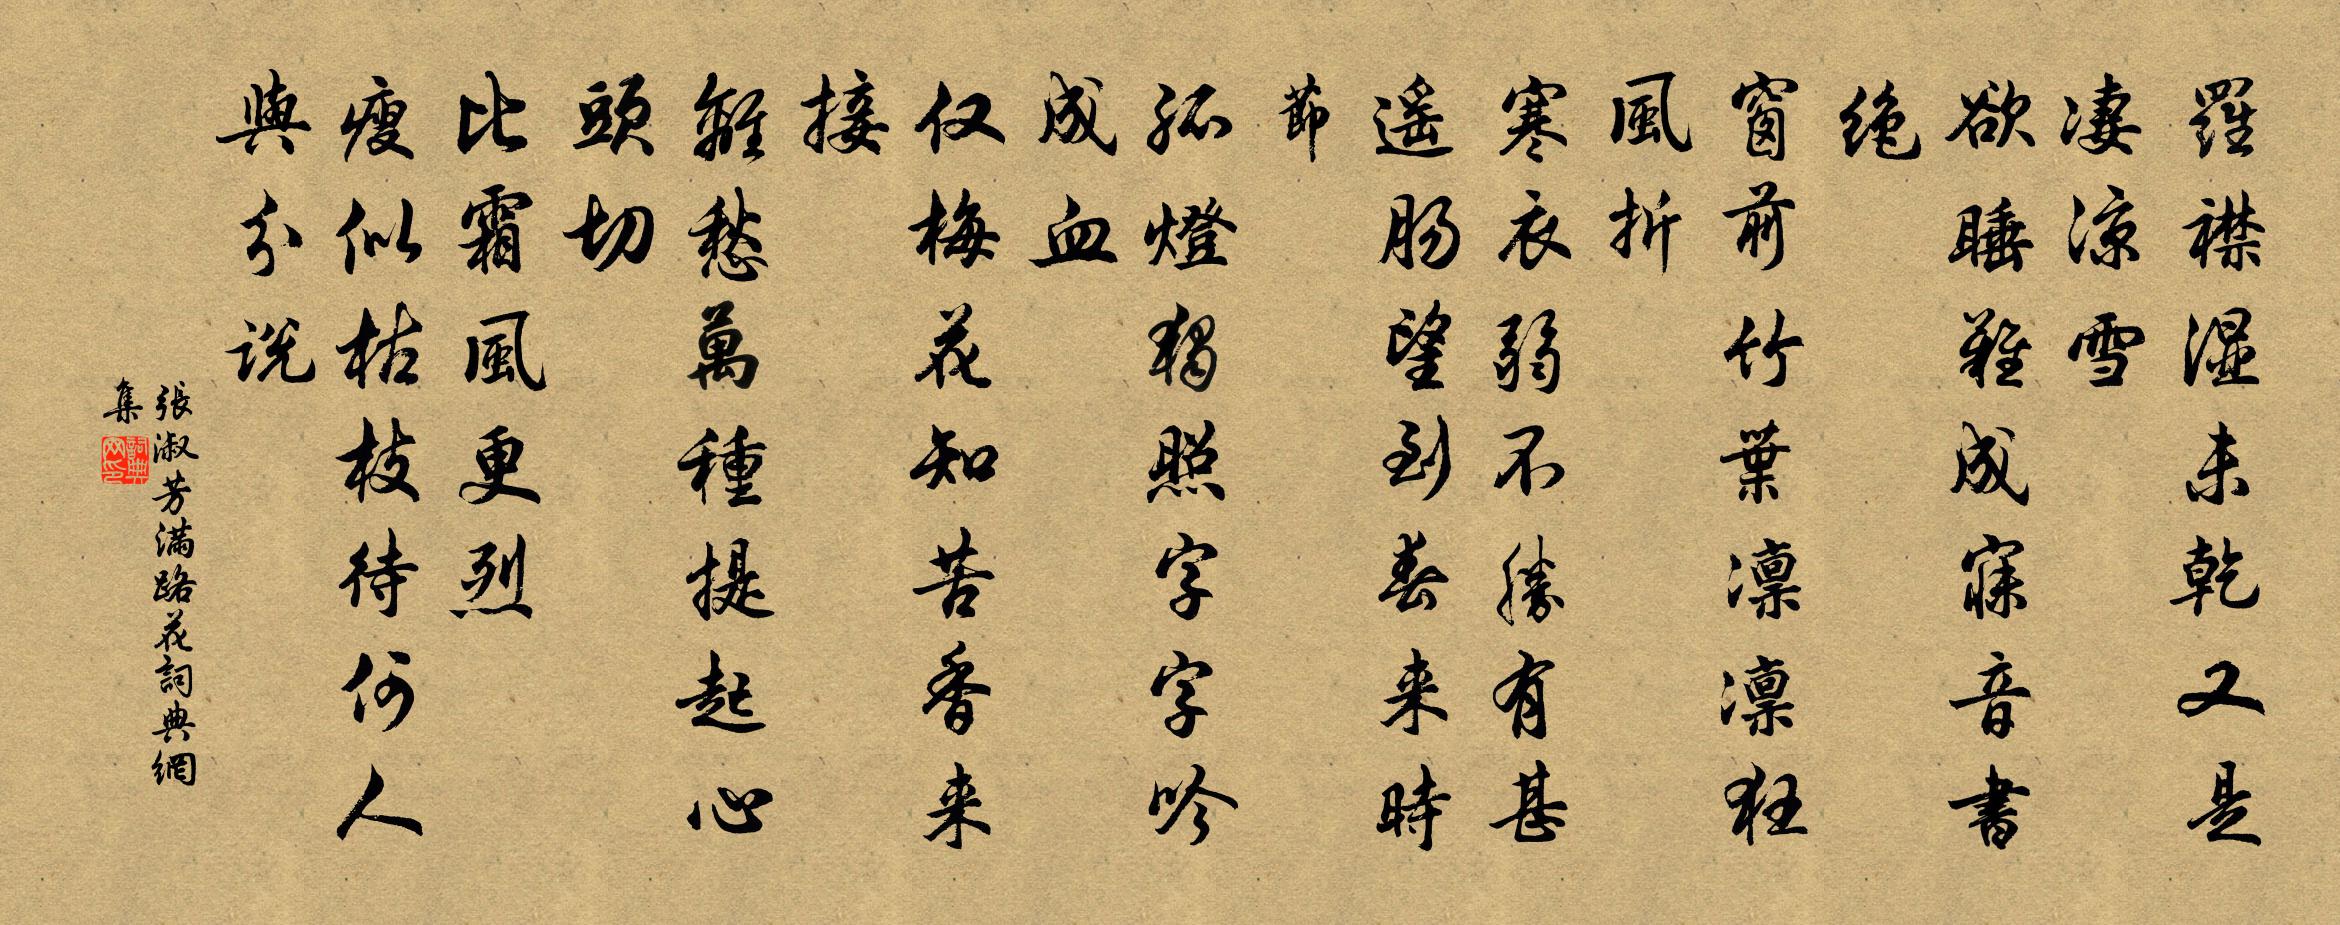 羅襟湿未乾又是
淒涼雪
欲睡難成寐音書
絶
窗前竹葉凜凜狂
風折
寒衣弱不勝有甚
遙腸望到春来時
節
孤燈獨照字字吟
成血
仅梅花知苦香来
接
離愁萬種提起心
頭切
比霜風更烈
瘦似枯枝待何人
與分説
張淑芳滿路花詞典網
集
詞典网印